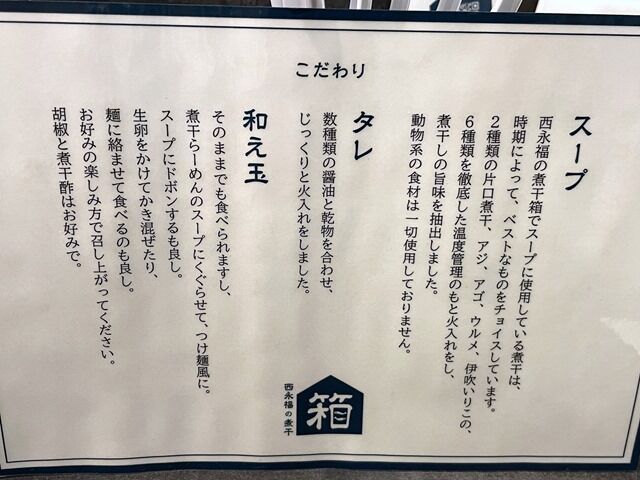 こだわり
スープ
西永福の煮干箱でスープに使用している煮干は、
時期によって、ベストなものをチョイスしています。
2種類の片口煮干、アジ、アゴ、ウルメ、伊吹いりこの、
6種類を徹底した温度管理のもと火入れをし、
煮干しの旨味を抽出しました。
動物系の食材は一切使用しておりません。
タレ
数種類の醤油と乾物を合わせ、
じっくりと火入れをしました。
和え玉
そのままでも食べられますし、
煮干らーめんのスープにくぐらせて、つけ麺風に。
スープにドボンするも良し。
生卵をかけてかき混ぜたり、
麺に絡ませて食べるのも良し。
お好みの楽しみ方で召し上がってください。
胡椒と煮干酢はお好みで。
西永福の煮干
箱